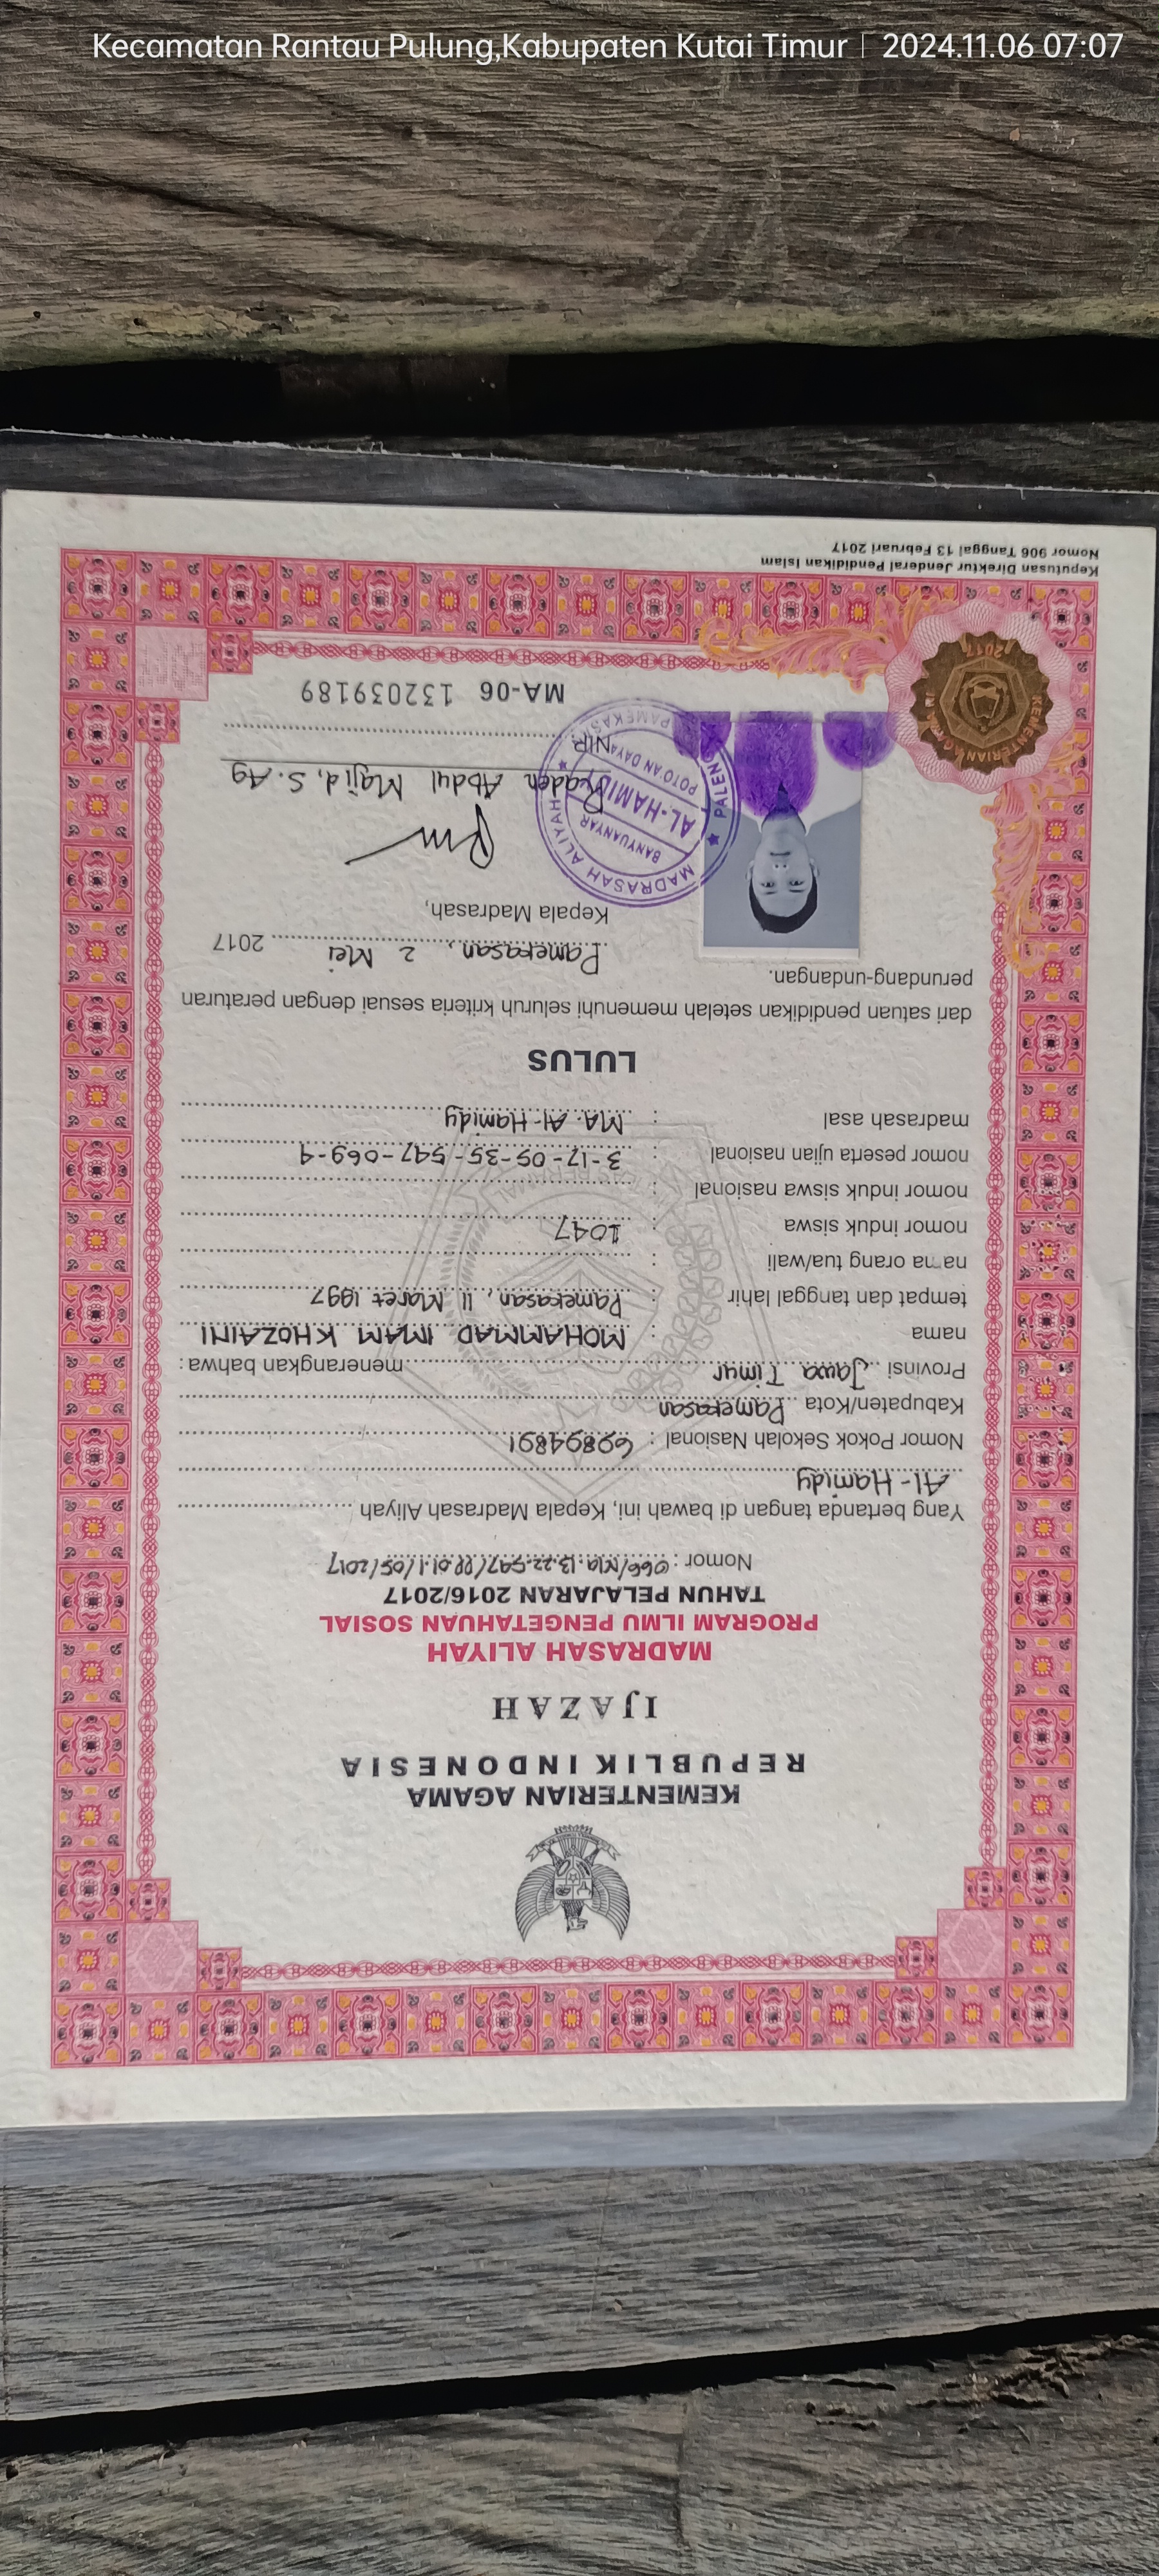 KEMENTERIAN AGAMA
REPUBLIK INDONESIA
IJAZAH
MADRASAH ALIYAH
PROGRAM ILMU PENGETAHUAN SOSIAL
TAHUN PELAJARAN 2016/2017
Nomor : 066/Ma.13.22.547/PP.01.1/05/2017
Yang bertanda tangan di bawah ini, Kepala Madrasah Aliyah
Al-Hamidy
Nomor Pokok Sekolah Nasional : 69894891
Kabupaten/Kota Pamekasan
Provinsi Jawa Timur menerangkan bahwa :
nama : MOHAMMAD IMAM KHOZAINI
tempat dan tanggal lahir : Pamekasan, 11 Maret 1997
nama orang tua/wali :
nomor induk siswa : 1047
nomor induk siswa nasional :
nomor peserta ujian nasional : 3-17-05-35-547-069-4
madrasah asal : MA. Al-Hamidy
LULUS
dari satuan pendidikan setelah memenuhi seluruh kriteria sesuai dengan peraturan
perundang-undangan.
Pamekasan, 2 Mei 2017
Kepala Madrasah,
MADRASAH ALIYAH
BANYUANYAR
AL-HAMIDY
POTO'AN DAYA
PAMEKASAN
Raden Abdul Majid, S. Ag
NIP.
MA-06 132039189
KEMENTERIAN AGAMA RI
2017
Keputusan Direktur Jenderal Pendidikan Islam
Nomor 906 Tanggal 13 Februari 2017
Kecamatan Rantau Pulung,Kabupaten Kutai Timur | 2024.11.06 07:07